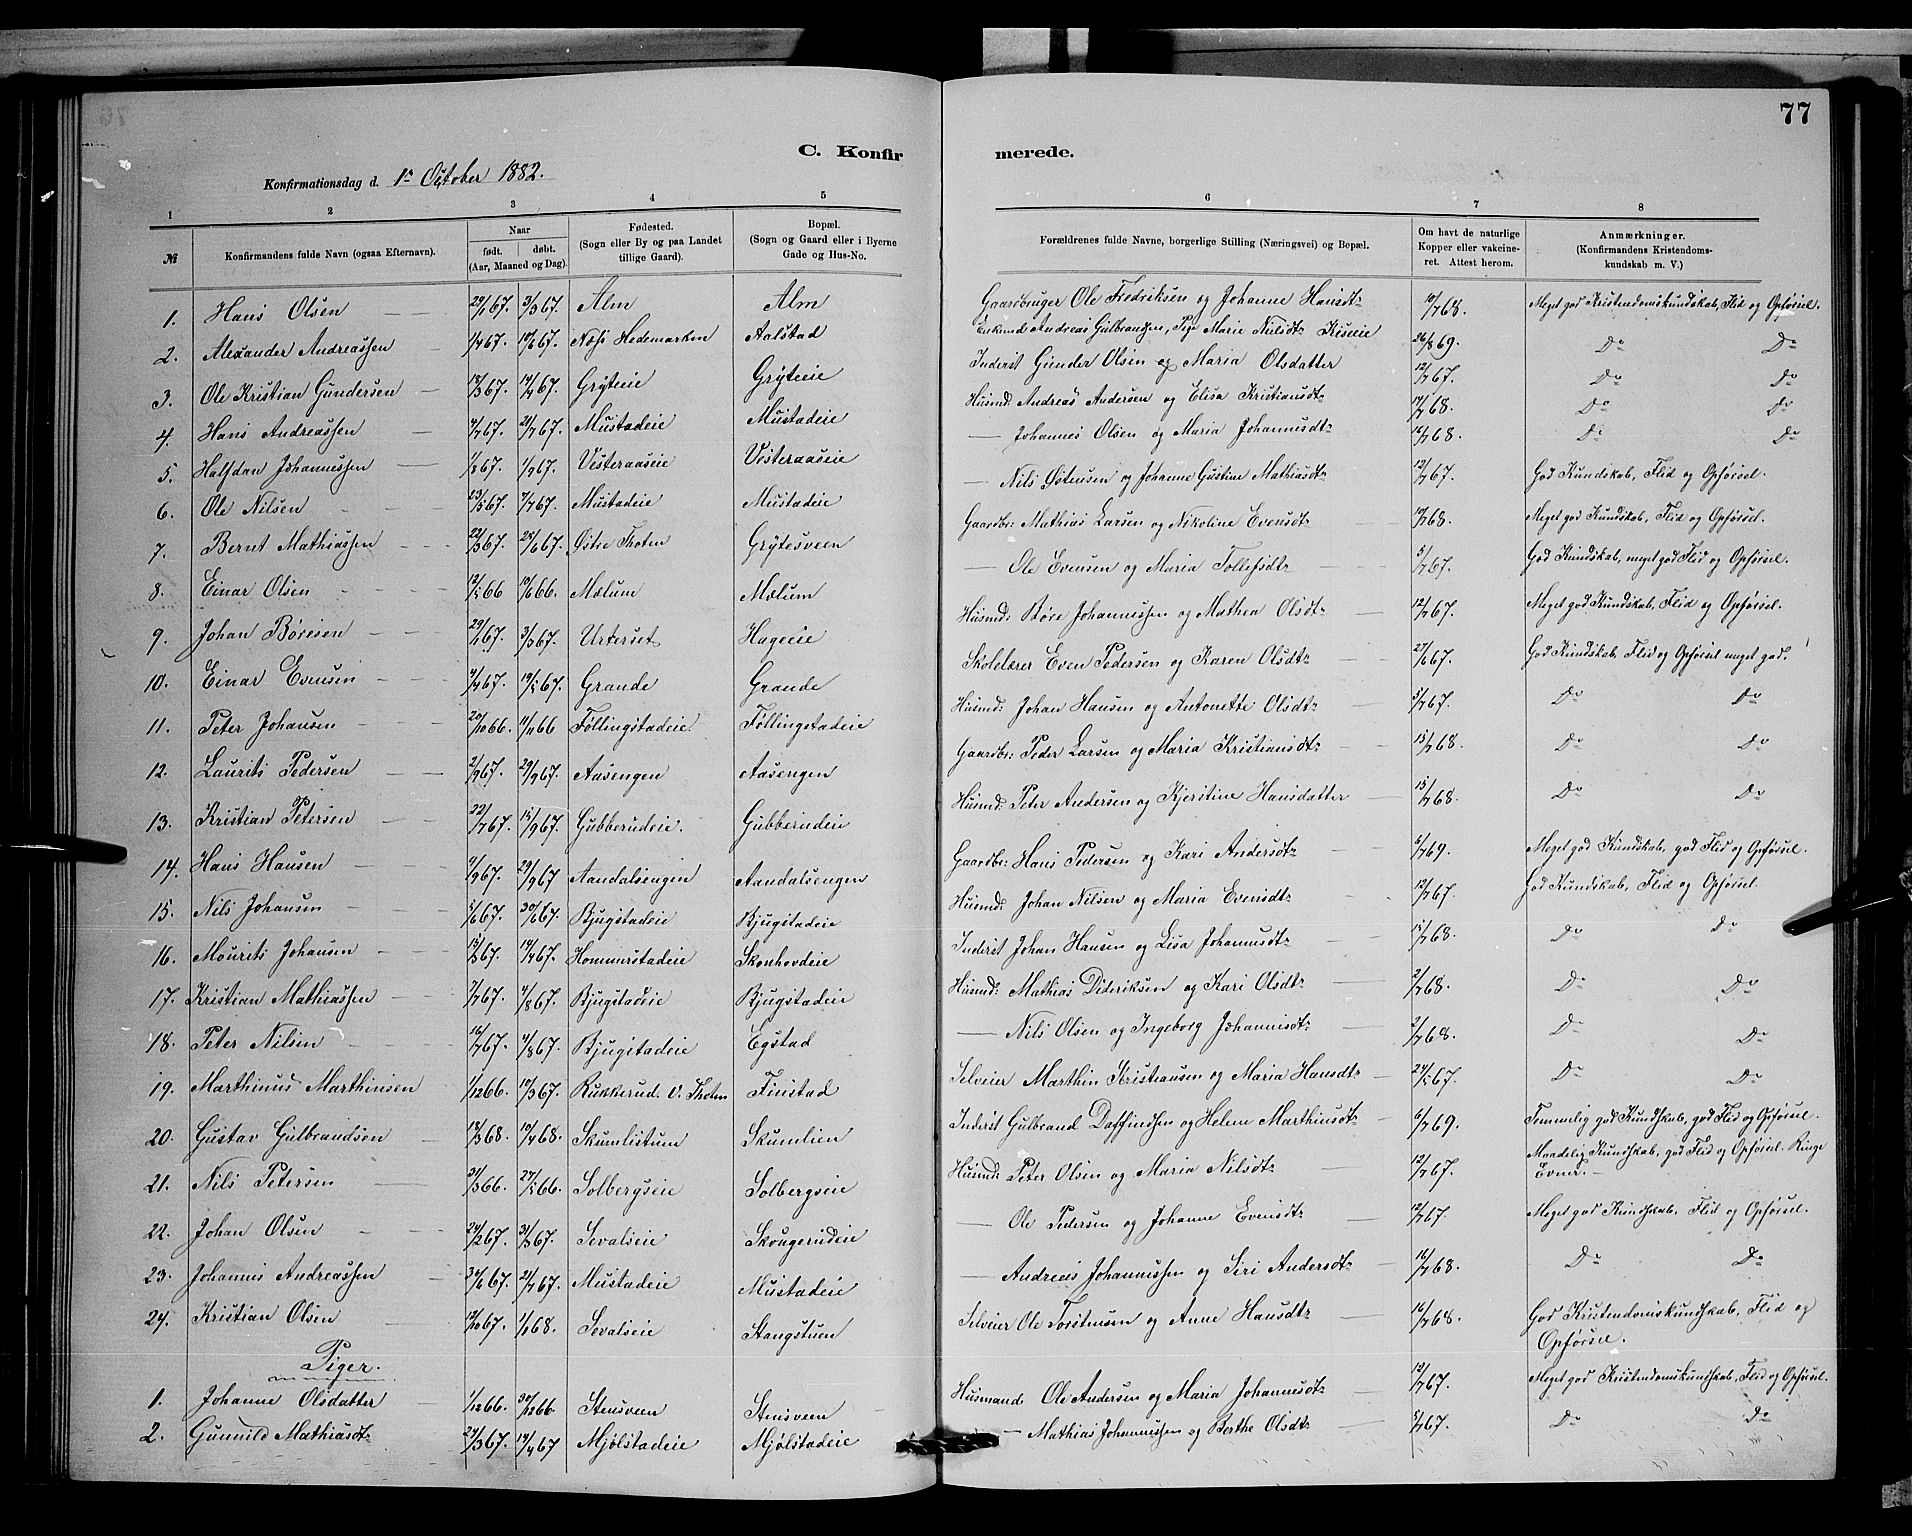 77
C. Konfirmerede.
Konfirmationsdag d. 1ste October 1882.
1 2 3 4 5 6 7 8
№ Konfirmandens fulde Navn (ogsaa Efternavn). Naar født. døbt. (Aar, Maaned og Dag). Fødested. (Sogn eller By og paa Landet tillige Gaard). Bopæl. (Sogn og Gaard eller i Byerne Gade og Hus-No. Forældrenes fulde Navne, borgerlige Stilling (Næringsvei) og Bopæl. Om havt de naturlige Kopper eller vakcineret. Attest herom. Anmærkninger. (Konfirmandens Kristendomskundskab m. V.)
1. Hans Olsen 29/1 67. 3/3 67. Alm Alm Gaardbruger Ole Fredriksen og Johanne Hansdtr 10/7 68. Meget god Kristendomskundskab, Flid og Opførsel.
2. Alexander Andreassen 1/4 67. 10/6 67. Næss Hedemarken Aalstad Enkemd Andreas Gulbrandsen, Pige Marie Nilsdtr Kiseie 26/8 69. Do Do
3. Ole Kristian Gundersen 18/3 67. 14/4 67. Gryteeie Gryteeie Inderst Gunder Olsen og Maria Olsdatter 12/7 67. Do Do
4. Hans Andreassen 4/7 67. 21/7 67. Mustadeie Mustadeie Husmd: Andreas Andersen og Elisa Kristiansdtr 17/7 68. Do Do
5. Halfdan Johannessen 1/8 67. 1/9 67. Vesteraaseie Vesteraaseie — Johannes Olsen og Maria Johannesdtr 16/7 68. Do Do
6. Ole Nilsen 23/5 67. 7/7 67. Mustadeie Mustadeie — Nils Sørensen og Johanne Gustine Mathiasdtr 12/7 67. God Kundskab, Flid og Opførsel.
7. Bernt Mathiassen 22/3 67. 28/6 67. Østre Thoten Grytesveen Gaardbr: Mathias Larsen og Nikoline Evensdtr 17/7 68. Meget god Kundskab, Flid og Opførsel.
8. Einar Olsen 12/5 66 10/6 66. Mælum Mælum — Ole Evensen og Maria Tollefsdtr 5/7 67. God Kundskab, meget god Flid og Opførsel.
9. Johan Børesen 29/1 67. 3/3 67. Urterset Hageeie Husmd: Børe Johannessen og Mathea Olsdtr 12/7 67. Meget god Kundskab, Flid og Opførsel.
10. Einar Evensen 4/4 67. 19/5 67. Grande Grande Skolelærer Even Pedersen og Karen Olsdtr 27/6 67. God Kundskab, Flid og Opførsel meget god.
11. Peter Johansen 20/10 66. 11/11 66 Føllingstadeie. Føllingstadeie Husmd: Johan Hansen og Antonette Olsdtr 5/7 67. Do Do
12. Laurits Pedersen 2/9 67. 29/9 67. Aasengen Aasengen Gaardbr: Peder Larsen og Maria Kristiansdtr 15/7 68. Do Do
13. Kristian Petersen 22/7 67. 15/9 67. Gubberudeie. Gubberudeie Husmd: Peter Andersen og Kjerstine Hansdatter 15/7 68. Do Do
14. Hans Hansen 4/9 67. 29/9 67 Aandalsengen Aandalsengen Gaardbr: Hans Pedersen og Kari Andersdtr 6/7 69. Meget god Kundskab, god Flid og Opførsel.
15. Nils Johansen 5/6 67. 30/6 67. Bjugstadeie Bjugstadeie Husmd: Johan Nilsen og Maria Evensdtr 12/7 67. God Kundskab, Flid og Opførsel.
16. Mourits Johansen 15/2 67. 14/4 67. Hommerstadeie Skonhovdeie Inderst Johan Hansen og Lisa Johannesdtr 15/7 68. Do Do
17. Kristian Mathiassen 7/7 67. 4/8 67. Bjugstadeie Bjugstadeie Husmd: Mathias Dideriksen og Kari Olsdtr 2/7 68. Do Do
18. Peter Nilsen 16/7 67. 4/8 67. Bjugstadeie Egstad — Nils Olsen og Ingeborg Johannesdtr 2/7 68. Do Do
19. Marthinus Marthinsen 1/12 66. 10/3 67. Rukkerud. V. Thoten Finstad Selveier Marthin Kristiansen og Maria Hansdtr 24/5 67. Do Do
20. Gustav Gulbrandsen 13/3 68. 10/4 68. Skumlistum Skumlien Inderst Gulbrand Daffindsen og Helene Marthinsdtr 6/7 69. Temmelig god Kundskab, god Flid og Opførsel.
21. Nils Petersen 31/3 66. 27/5 66. Solbergseie Solbergseie Husmd: Peter Olsen og Maria Nilsdtr 12/7 67. Maadelig Kundskab, god Flid og Opførsel. Ringe Evner.
22. Johan Olsen 24/2 67. 31/3 67. Sevalseie Skougerudeie — Ole Pedersen og Johanne Evensdtr 12/7 67. Meget god Kundskab, Flid og Opførsel.
23. Johannes Andreassen 30/6 67. 21/7 67. Mustadeie Mustadeie — Andreas Johannessen og Siri Andersdtr 16/7 68. Do Do
24. Kristian Olsen 12/10 67. 1/1 68. Sevalseie Stangstuen Selveier Ole Torstensen og Anne Hansdtr 16/7 68. God Kristendomskundskab, Flid og Opførsel.
Piger.
1. Johanne Olsdatter 1/12 66. 30/12 66. Stensveen Stensveen Husmand Ole Andersen og Maria Johannesdtr 12/7 67. Meget god Kristendomskundskab, Flid og Opførsel.
2. Gunnild Mathiasdtr 29/3 67. 14/4 67 Mjølstadeie Mjølstadeie — Mathias Johannessen og Berthe Olsdtr 5/7 67. Do Do